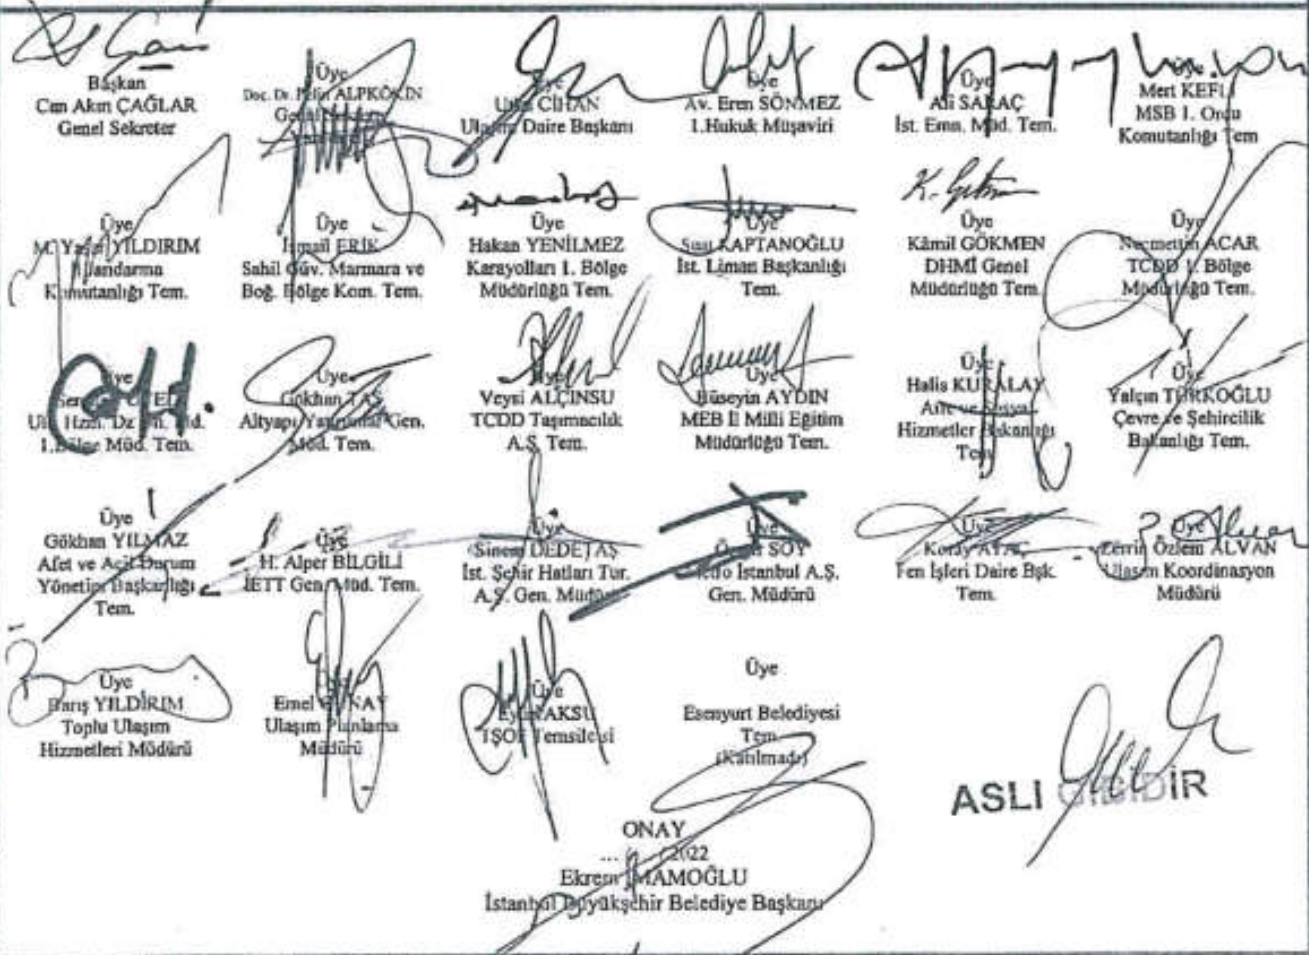 Başkan
Can Akın ÇAĞLAR
Genel Sekreter
Üye
Doc. Dr. Pelin ALPKÖKİN
Üye
CİHAN
Ulaşım Daire Başkanı
Üye
Av. Eren SÖNMEZ
1.Hukuk Müşaviri
Üye
Ali SARAÇ
İst. Emn. Müd. Tem.
Üye
Mert KEFLİ
MSB 1. Ordu
Komutanlığı Tem
Üye
YILDIRIM
Jandarma
Komutanlığı Tem.
Üye
İsmail ERİK
Sahil Güv. Marmara ve
Boğ. Bölge Kom. Tem.
Üye
Hakan YENİLMEZ
Karayolları 1. Bölge
Müdürlüğü Tem.
Üye
KAPTANOĞLU
İst. Liman Başkanlığı
Tem.
K. Gökmen
Üye
Kâmil GÖKMEN
DHMİ Genel
Müdürlüğü Tem.
Üye
Necmettin ACAR
TCDD 1. Bölge
Müdürlüğü Tem.
Üye
1.Bölge Müd. Tem.
Üye
Gökhan TAŞ
Altyapı Yatırımlar Gen.
Müd. Tem.
Üye
Veysi ALÇINSU
TCDD Taşımacılık
A.Ş. Tem.
Üye
Hüseyin AYDIN
MEB İl Milli Eğitim
Müdürlüğü Tem.
Üye
Halis KURALAY
Aile ve Sosyal
Hizmetler Bakanlığı
Tem
Üye
Yalçın TÜRKOĞLU
Çevre ve Şehircilik
Bakanlığı Tem.
Üye
Gökhan YILMAZ
Afet ve Acil Durum
Yönetim Başkanlığı
Tem.
Üye
H. Alper BİLGİLİ
İETT Gen. Müd. Tem.
Üye
Sinem DEDETAŞ
İst. Şehir Hatları Tur.
A.Ş. Gen. Müdürü
Üye
SOY
Metro İstanbul A.Ş.
Gen. Müdürü
Üye
Koray
Fen İşleri Daire Bşk.
Tem.
Üye
Zerrin Özlem ALVAN
Ulaşım Koordinasyon
Müdürü
Üye
Barış YILDIRIM
Toplu Ulaşım
Hizmetleri Müdürü
Emel
Ulaşım Planlama
Müdürü
Üye
AKSU
Temsilcisi
Üye
Esenyurt Belediyesi
Tem.
(Katılmadı)
ASLI GİBİDİR
ONAY
2022
Ekrem İMAMOĞLU
İstanbul Büyükşehir Belediye Başkanı